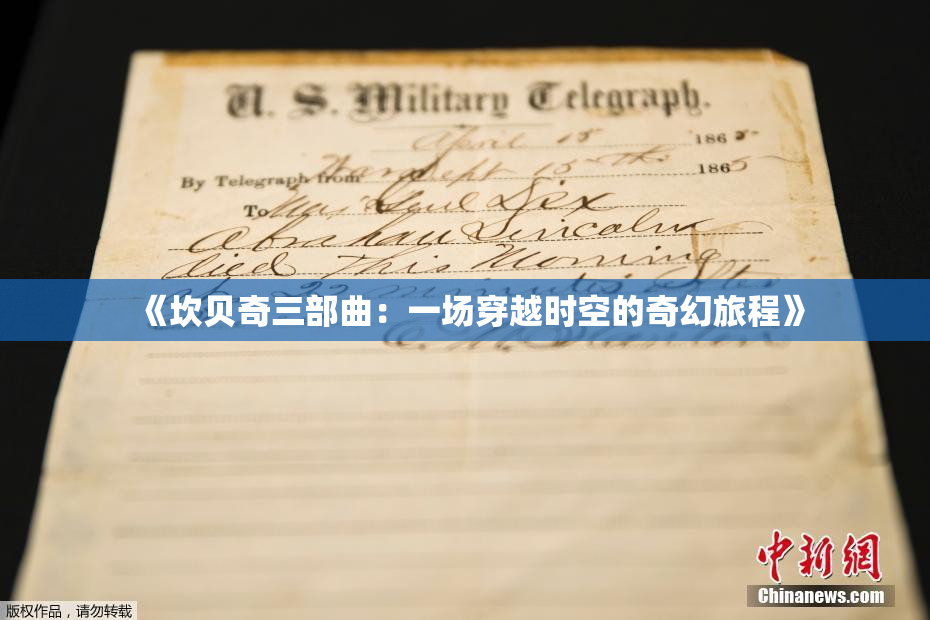 U. S. Military Telegraph.
April 15 1865
By Telegraph from War Dept 15th 1865
To Maj Genl Dix
Abraham Lincoln
died This Morning
at 22 minutes after
《坎贝奇三部曲：一场穿越时空的奇幻旅程》
E. M. Stanton
中新网
Chinanews.com
版权作品，请勿转载